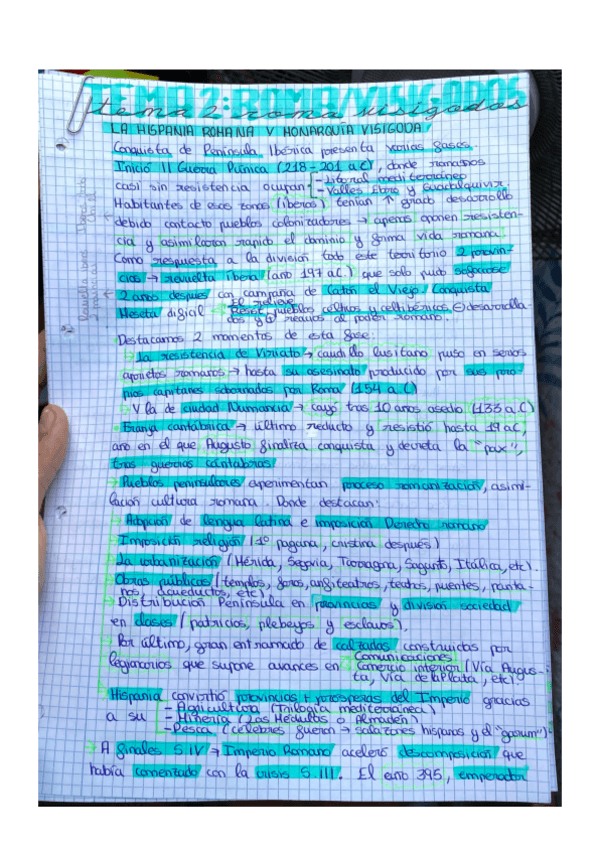 TEMA 2: ROMA/VISIGODOS
tema 2: roma visigodos
LA HISPANIA ROMANA Y MONARQUÍA VISIGODA
Conquista de Península Ibérica presenta varias fases.
Inició II Guerra Púnica (218-201 a.C), donde romanos
casi sin resistencia ocupan - Litoral mediterráneo
- Valles Ebro y Guadalquivir.
Habitantes de esas zonas (íberos) tenían ↑ grado desarrollo
debido contacto pueblos colonizadores → apenas oponen resisten-
cia y asimilaron rápido el dominio y forma vida romana.
Como respuesta a la división todo este territorio 2 provin-
cias → revuelta íbera (año 197 a.C) que solo pudo sofocarse
2 años después con campaña de Catón el Viejo. Conquista
Meseta difícil El relieve
Resist. pueblos celtas y celtibéricos ⊖ desarrolla-
dos y ⊕ reacios al poder romano.
Destacamos 2 momentos de esta fase:
↳ La resistencia de Viriato → caudillo lusitano puso en serios
aprietos romanos → hasta su asesinato producido por sus pro-
pios capitanes sobornados por Roma (154 a.C)
↳ Y la de ciudad Numancia → cayó tras 10 años asedio (133 a.C)
Franja cantábrica → último reducto y resistió hasta 19 a.C,
año en el que Augusto finaliza conquista y decreta la "pax",
tras guerras cántabras
Pueblos peninsulares experimentan proceso romanización, asimi-
lación cultura romana. Donde destacan:
Adopción de lengua latina e imposición Derecho romano
Imposición religión (1º pagana, cristina después)
La urbanización (Mérida, Segovia, Tarragona, Sagunto, Itálica, etc).
Obras públicas (templos, foros, anfiteatros, teatros, puentes, panta-
nos, acueductos, etc)
Distribución Península en provincias y división sociedad
en clases (patricios, plebeyos y esclavos).
Por último, gran entramado de calzadas construidas por
legionarios que supone avances en Comunicaciones
Comercio interior (Vía Augus-
ta, Vía de la Plata, etc)
Hispania convirtió provincias + prósperas del Imperio gracias
a su - Agricultura (Trilogía mediterránea)
- Minería (Las Médulas o Almadén)
- Pesca (célebres fueron → salazones hispanos y el "garum")
→ A finales S.IV → Imperio Romano aceleró descomposición que
había comenzado con la crisis S.III. El año 395, emperador